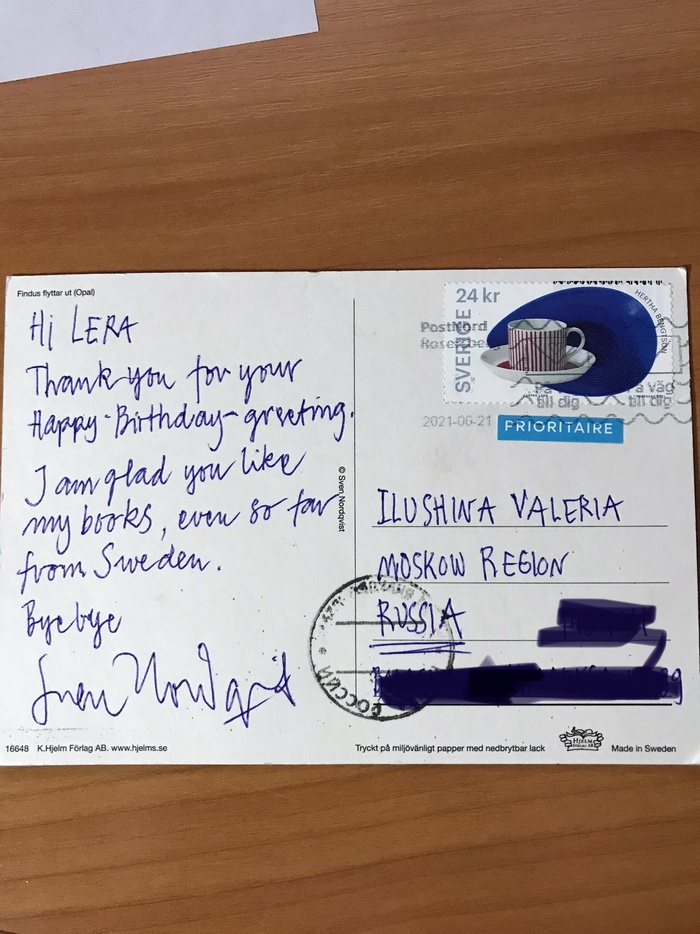 Findus flyttar ut (Opal)
Hi LERA
Thank you for your
Happy-Birthday-greeting.
I am glad you like
my books, even so far
from Sweden.
Byebye
Sven Nordqvist
16648 K.Hjelm Förlag AB. www.hjelms.se
© Sven Nordqvist
24 kr
SVERIGE
HERTHA BENGTSON
PostNord
Rosersberg
På väg
till dig
till dig
2021-06-21
PRIORITAIRE
ILUSHINA VALERIA
MOSKOW REGION
RUSSIA
РОССИЯ
Tryckt på miljövänligt papper med nedbrytbar lack
HJELM
FÖRLAG AB
Made in Sweden